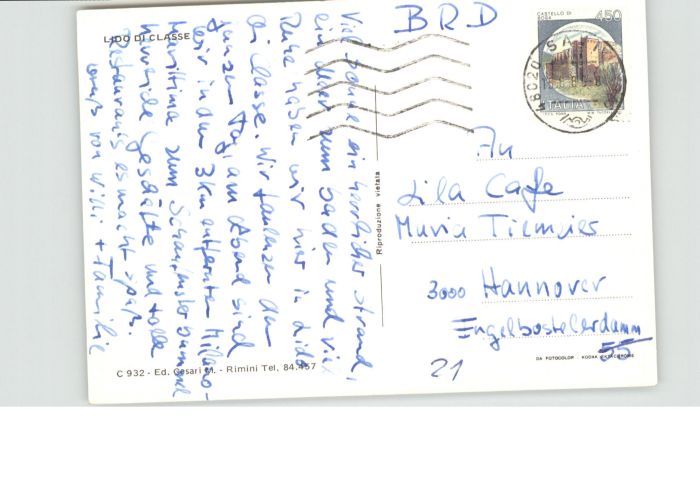 LIDO DI CLASSE
Viel Sonne ein herrlicher Strand,
ein Meer zum baden und viel
Ruhe haben wir hier in Lido
di Classe. Wir faulenzen den
ganzen Tag, am Abend sind
wir in dem 3km entfernten Milano-
Marittima zum Schaufensterbummel
Geschäfte und tolle
Restaurants es macht Spaß.
von Willi + Familie
C 932 - Ed. Cesari M. - Rimini Tel. 84.457
Riproduzione vietata
BRD
CASTELLO DI
ROSA
450
ITALIA
48020 SA
An
Lila Cafe
3000 Hannover
Engelbostelerdamm
55
21
DA FOTOCOLOR KODAK EKTACHROME